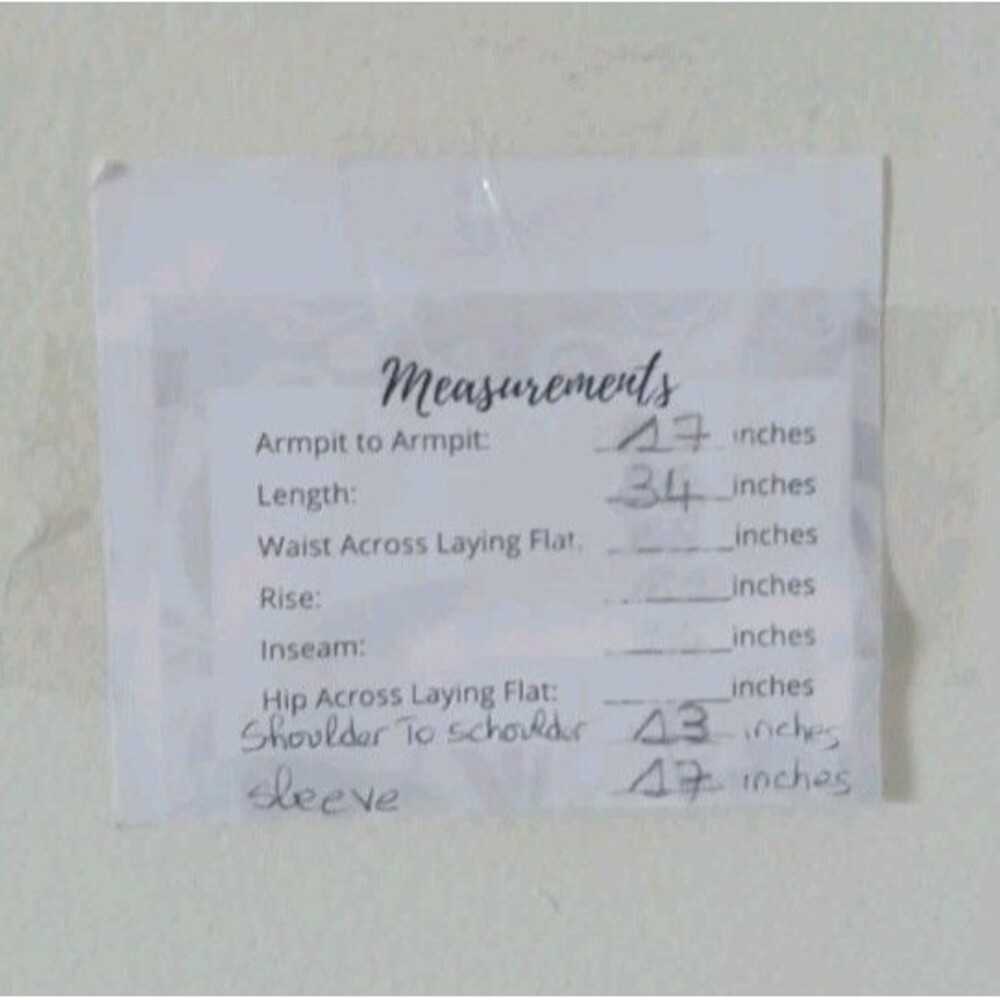 Measurements
Armpit to Armpit: 17 inches
Length: 34 inches
Waist Across Laying Flat. ______inches
Rise: ______inches
Inseam: ______inches
Hip Across Laying Flat: ______inches
Shoulder To schoulder 13 inches
sleeve 17 inches